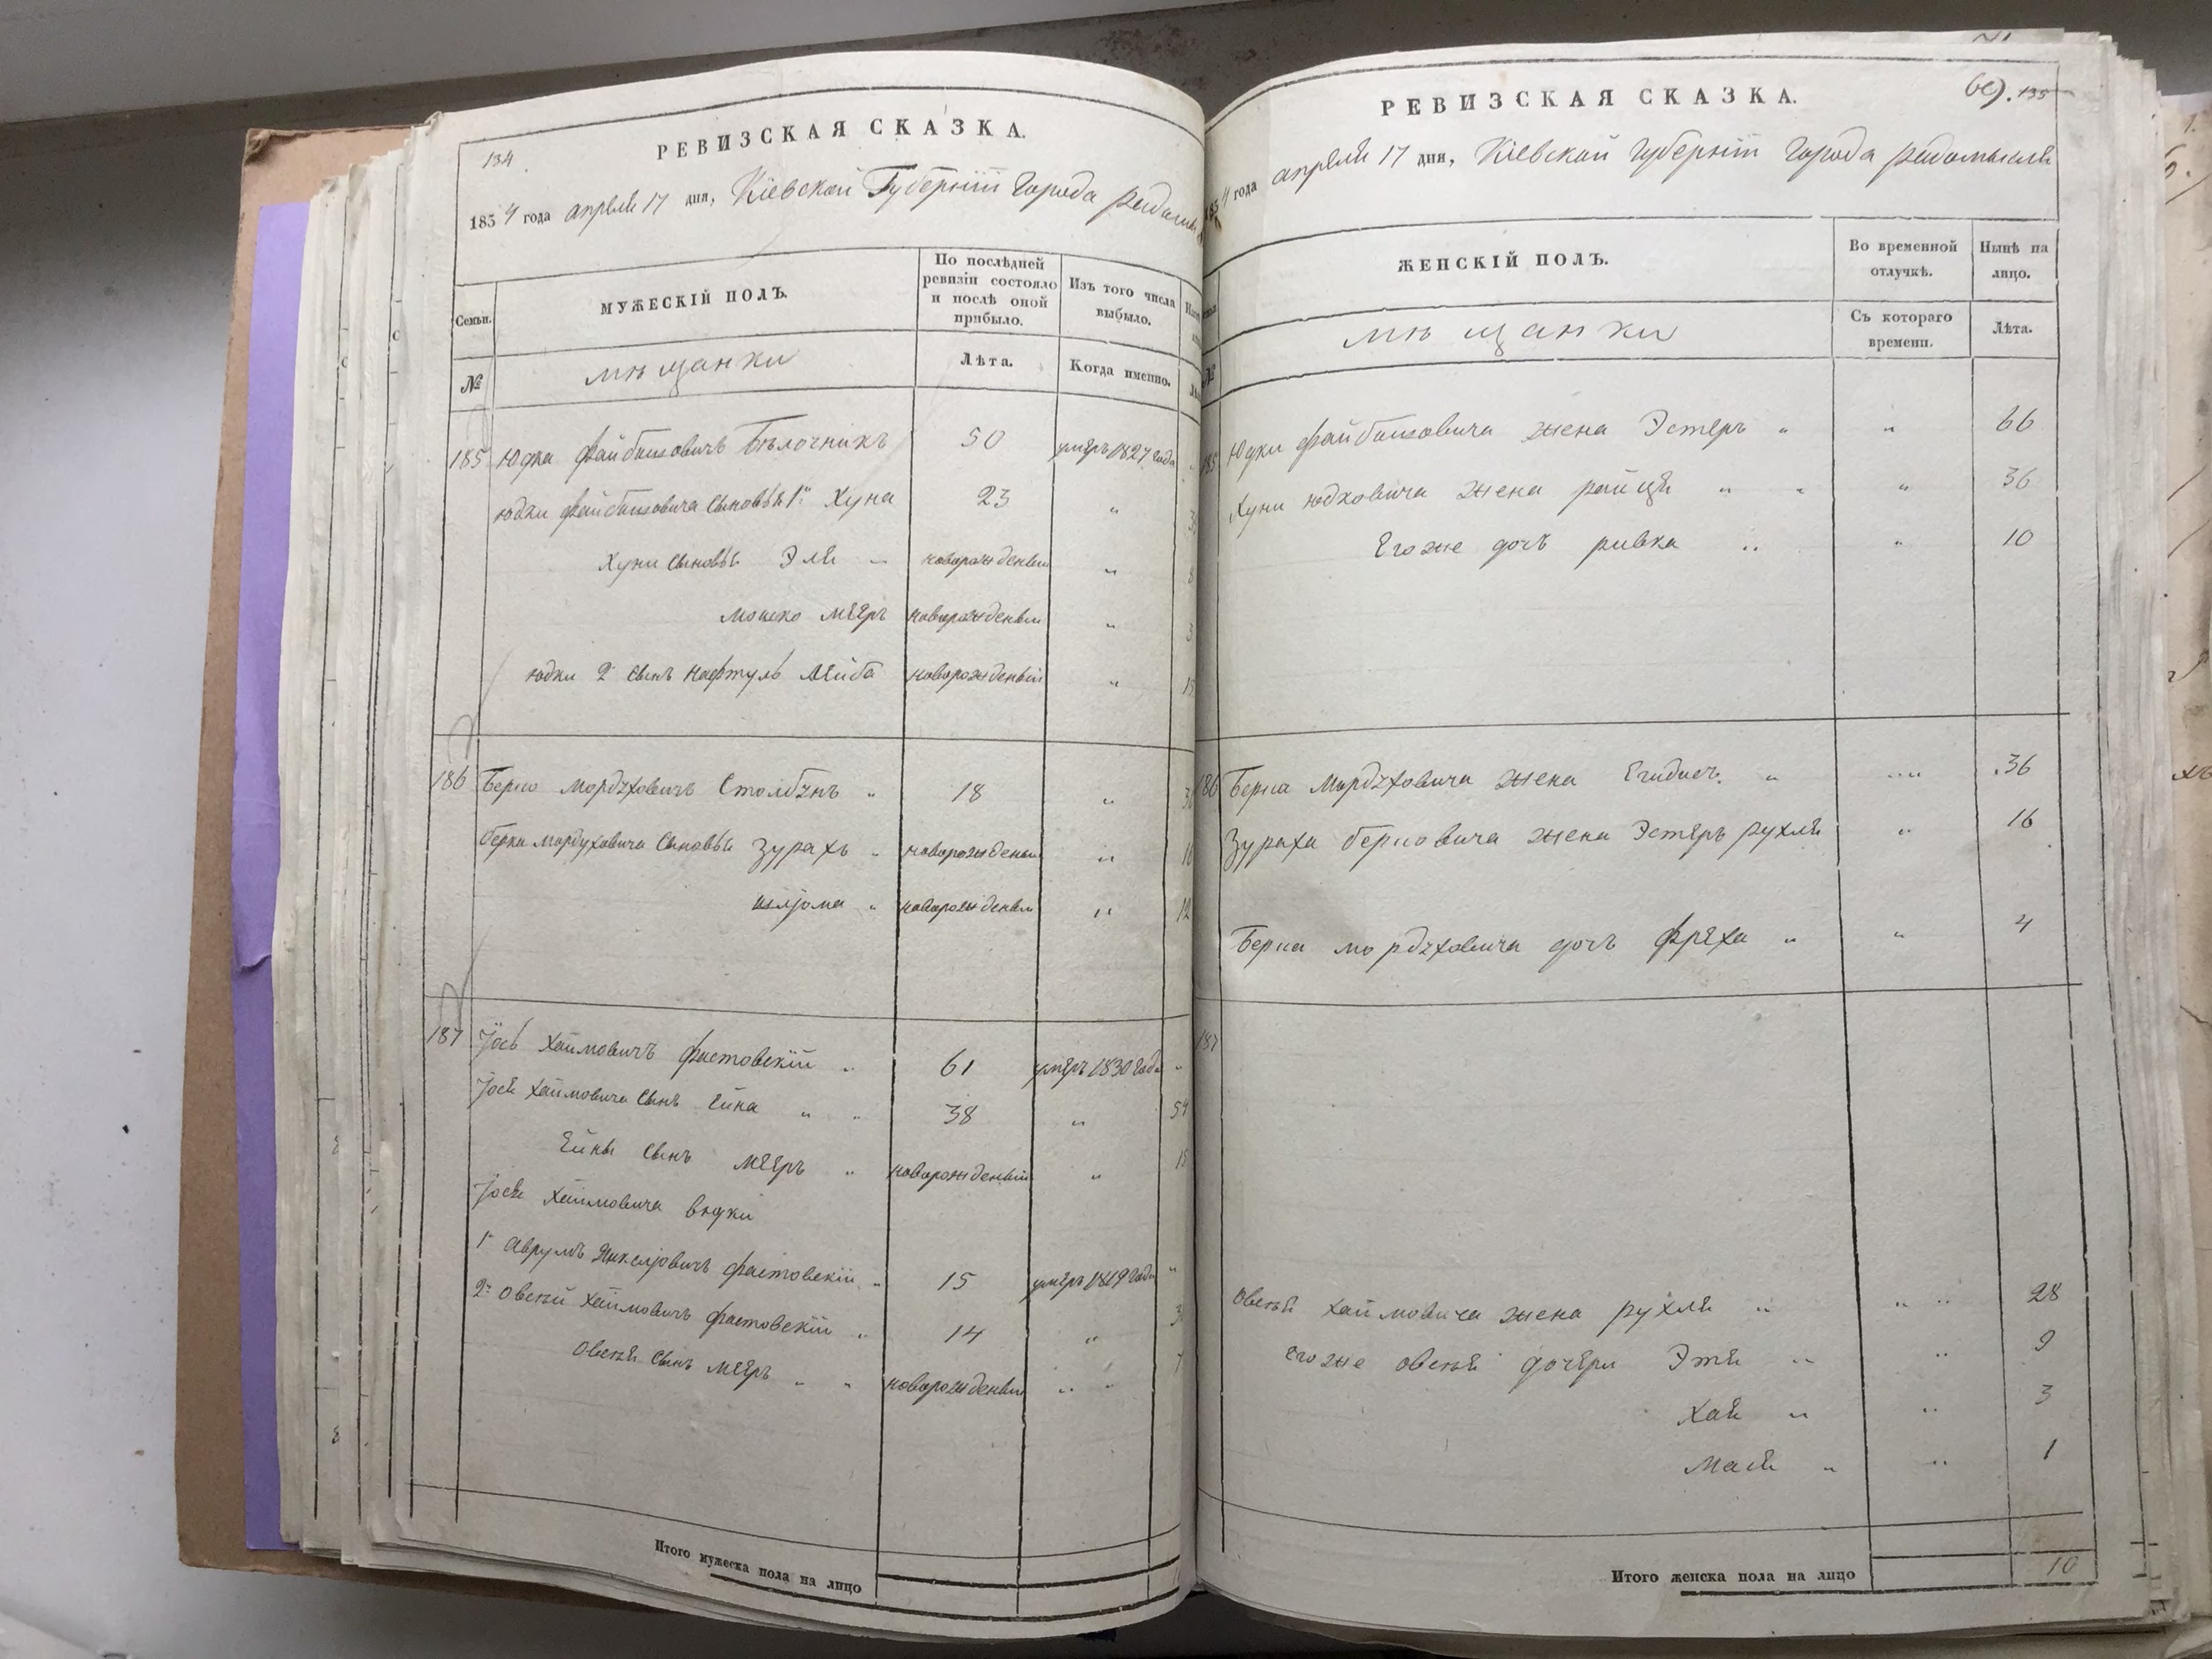 134
РЕВИЗСКАЯ СКАЗКА.
1854 года апреля 17 дня, Кіевской Губерніи Города
Семьи.
МУЖЕСКІЙ ПОЛЪ.
По послѣдней ревизіи состояло и послѣ оной прибыло.
Изъ того числа выбыло.
№
мѣщанки
Лѣта.
Когда именно.
185 Юдка Файбишовичъ Бѣлочникъ 50 умеръ 1827 года
Юдки Файбишовича сыновья 1й Хуна 23 "
Хуни сыновья Эля " новорожденый "
Мошко Мееръ новорожденый "
Юдки 2 сынъ Нафтуль Лейба новорожденый "
186 Берко Мордуховичъ Столбунъ " 18 "
Берки Мордуховича сыновья Зурахъ " новорожденый " 16
Шліома " новорожденый " 12
187 Іось Хаймовичъ Фастовскій " 61 умеръ 1830 года "
Іося Хаймовича сынъ Ейна " " 38 " 54
Ейны сынъ Мееръ " новорожденый "
Іося Хаймовича внуки
1й Аврумъ Фастовскій " 15 умеръ 1849 года "
2й Овсѣй Хаймовичъ Фастовскій " 14 "
Овсѣя сынъ Мееръ " " новорожденый " "
Итого мужеска пола на лицо
135
РЕВИЗСКАЯ СКАЗКА.
1854 года апреля 17 дня, Кіевской Губерніи Города Радомысля
ЖЕНСКІЙ ПОЛЪ.
Во временной отлучкѣ.
Нынѣ на лицо.
№
мѣщанки
Съ котораго времени.
Лѣта.
185 Юдки Файбишовича жена Эстеръ " " 66
Хуни Юдковича жена Райця " " " 36
Его же дочь Ривка " " 10
186 Берка Мордуховича жена " " 36
Зураха Берковича жена Эстеръ Рухля " 16
Берка Мордуховича дочь Фреха " " 4
187
Овсѣя Хаймовича жена Рухля " " " 28
Его же Овсѣя дочери Этя " " 9
Хая " " 3
Мася " " 1
Итого женска пола на лицо 10